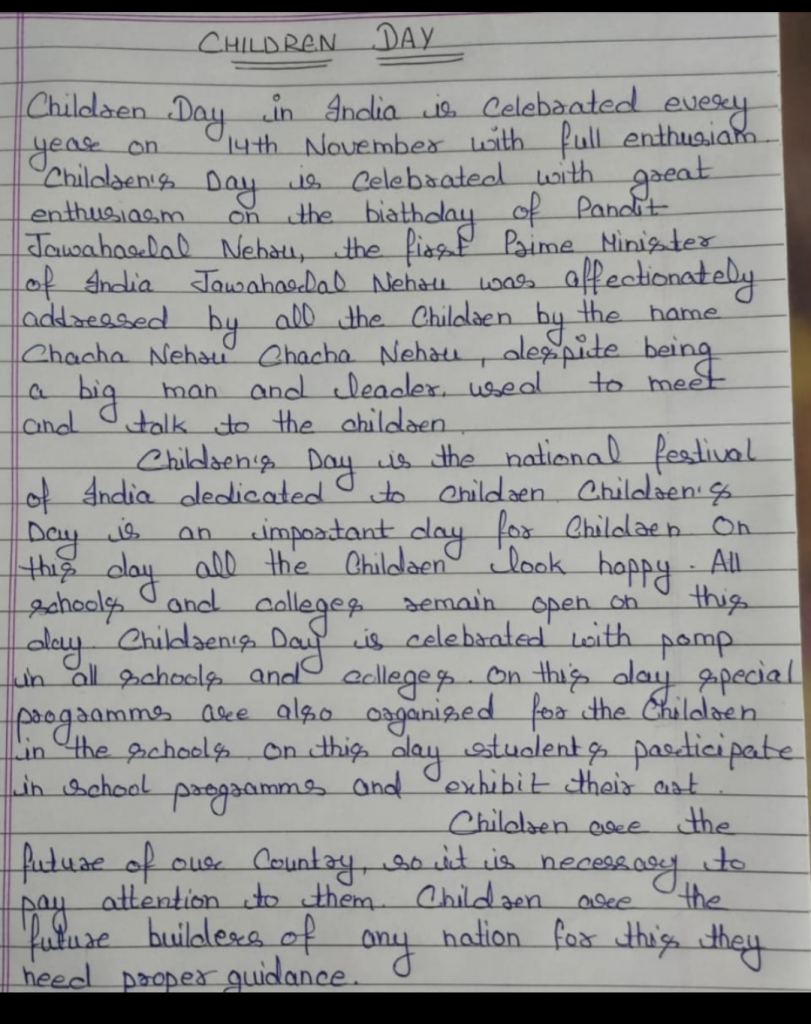 CHILDREN DAY
Children Day in India is Celebrated every
year on 14th November with full enthusiam
Children's Day is Celebrated with great
enthusiasm on the birthday of Pandit
Jawaharlal Nehru, the first Prime Minister
of India Jawaharlal Nehru was affectionately
addressed by all the Children by the name
Chacha Nehru Chacha Nehru, despite being
a big man and leader. used to meet
and talk to the children
Children's Day is the national festival
of India dedicated to children Children's
Day is an important day for Children On
this day all the Children look happy. All
schools and colleges remain open on this
day. Children's Day is celebrated with pomp
in all schools and colleges. On this day special
programms are also organised for the Children
in the schools on this day students participate
in school programms and exhibit their art.
Children are the
future of our Country, so it is necessary to
pay attention to them. Children are the
future builders of any nation for this they
need proper guidance.